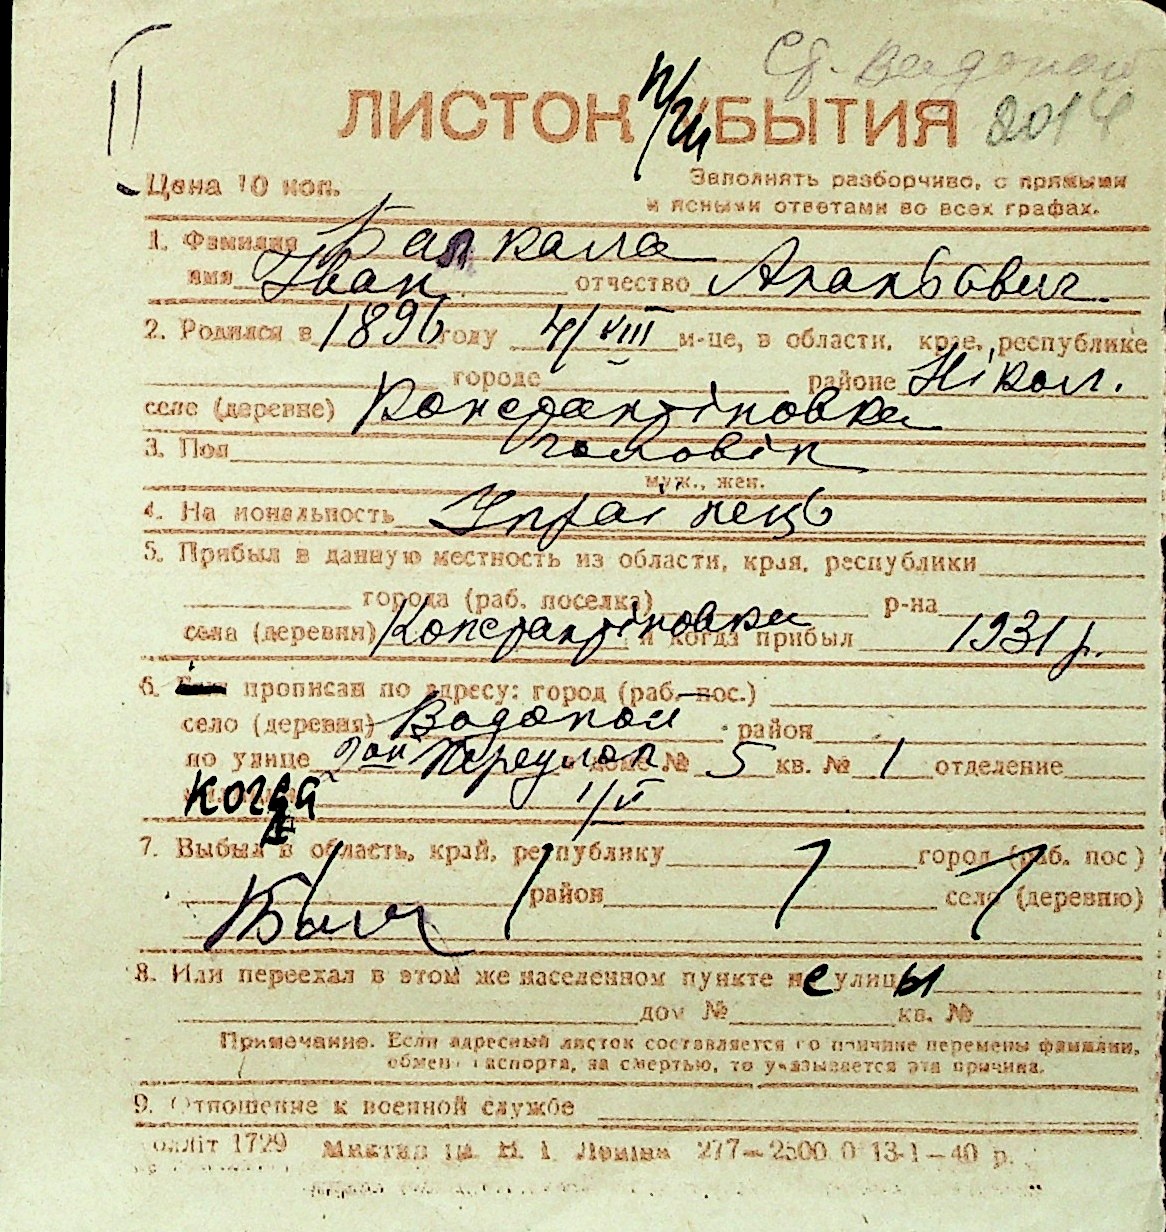 II
Ст. Водопой
ЛИСТОК УБЫТИЯ 2014
Цена 10 коп.
Заполнять разборчиво, с прямыми
и ясными ответами во всех графах.
1. Фамилия Балкала
имя Іван отчество
2. Родился в 1896 году 4/VIII м-це, в области, крае, республике
городе районе Нікол.
селе (деревне) Константіновка
3. Пол чоловік
муж., жен.
4. Национальность Українець
5. Прибыл в данную местность из области, края, республики
города (раб. поселка) р-на
села (деревни) Константіновка и когда прибыл 1931 р.
6. прописан по адресу: город (раб. пос.)
село (деревня) Водопой район
по улице Переулок дом № 5 кв. № 1 отделение
когда 1/VI
7. Выбыл в область, край, республику город (раб. пос)
район село (деревню)
8. Или переехал в этом же населенном пункте не улицы
дом № кв. №
Примечание. Если адресный листок составляется по причине перемены фамилии,
обмена паспорта, за смертью, то указывается эта причина.
9. Отношение к военной службе
1729 277—2500 0 13-1—40 р.